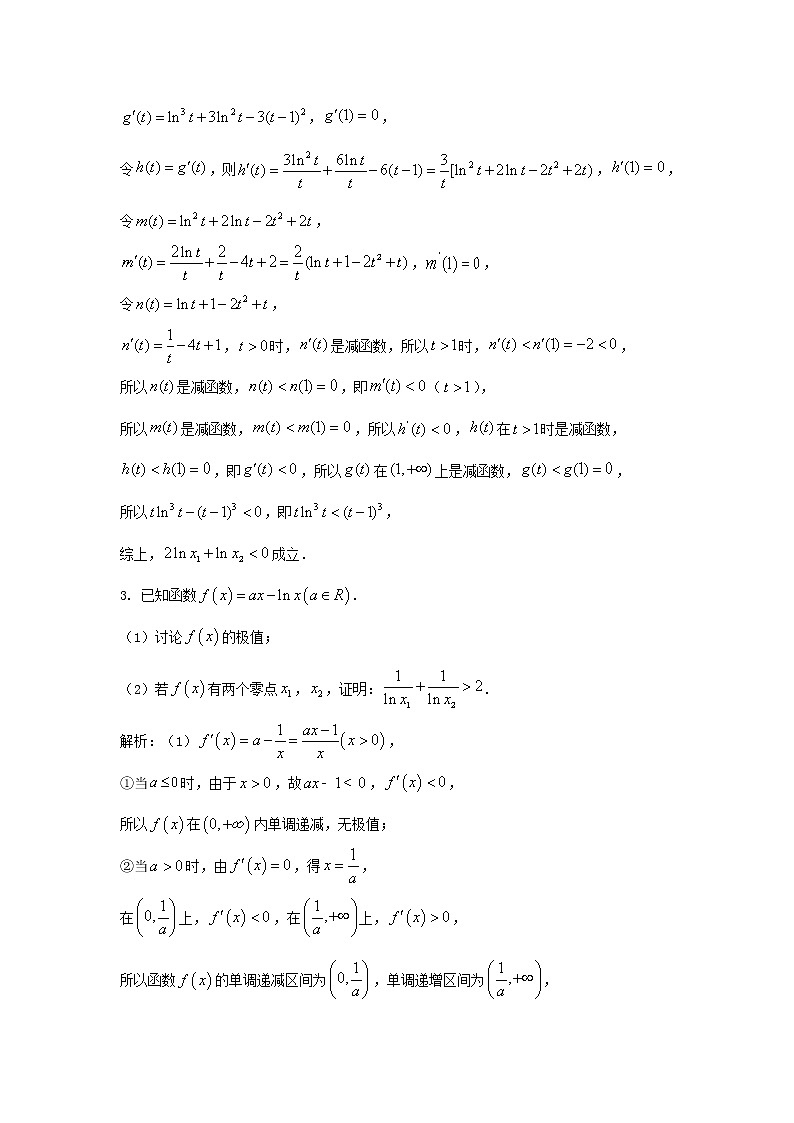 g′(t) = ln³ t + 3ln² t − 3(t − 1)²，g′(1) = 0，
令h(t) = g′(t)，则h′(t) = \frac{3ln² t}{t} + \frac{6ln t}{t} − 6(t − 1) = \frac{3}{t}[ln² t + 2ln t − 2t² + 2t)，h′(1) = 0，
令m(t) = ln² t + 2ln t − 2t² + 2t，
m′(t) = \frac{2ln t}{t} + \frac{2}{t} − 4t + 2 = \frac{2}{t}(ln t + 1 − 2t² + t)，m′(1) = 0，
令n(t) = ln t + 1 − 2t² + t，
n′(t) = \frac{1}{t} − 4t + 1，t > 0时，n′(t)是减函数，所以t > 1时，n′(t) < n′(1) = −2 < 0，
所以n(t)是减函数，n(t) < n(1) = 0，即m′(t) < 0（t > 1），
所以m(t)是减函数，m(t) < m(1) = 0，所以h′(t) < 0，h(t)在t > 1时是减函数，
h(t) < h(1) = 0，即g′(t) < 0，所以g(t)在(1,+∞)上是减函数，g(t) < g(1) = 0，
所以t ln³ t − (t − 1)³ < 0，即t ln³ t < (t − 1)³，
综上，2ln x₁ + ln x₂ < 0成立．
3. 已知函数f(x) = ax − ln x(a ∈ R)．
（1）讨论f(x)的极值；
（2）若f(x)有两个零点x₁，x₂，证明：\frac{1}{ln x₁} + \frac{1}{ln x₂} > 2．
解析：（1）f′(x) = a − \frac{1}{x} = \frac{ax − 1}{x}(x > 0)，
①当a ≤ 0时，由于x > 0，故ax − 1 < 0，f′(x) < 0，
所以f(x)在(0,+∞)内单调递减，无极值；
②当a > 0时，由f′(x) = 0，得x = \frac{1}{a}，
在(0,\frac{1}{a})上，f′(x) < 0，在(\frac{1}{a},+∞)上，f′(x) > 0，
所以函数f(x)的单调递减区间为(0,\frac{1}{a})，单调递增区间为(\frac{1}{a},+∞)，